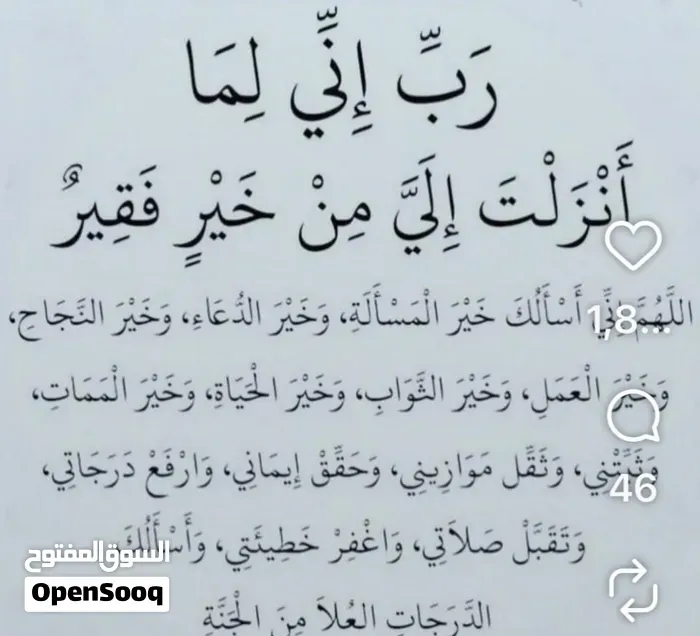 رَبِّ إِنِّي لِمَا
أَنْزَلْتَ إِلَيَّ مِنْ خَيْرٍ فَقِيرٌ
اللَّهُمَّ إِنِّي أَسْأَلُكَ خَيْرَ الْمَسْأَلَةِ، وَخَيْرَ الدُّعَاءِ، وَخَيْرَ النَّجَاحِ،
1,8...
وَخَيْرَ الْعَمَلِ، وَخَيْرَ الثَّوَابِ، وَخَيْرَ الْحَيَاةِ، وَخَيْرَ الْمَمَاتِ،
وَثَبِّتْنِي، وَثَقِّل مَوَازِينِي، وَحَقِّقْ إِيمَانِي، وَارْفَعْ دَرَجَاتِي،
46
وَتَقَبَّلْ صَلَاتِي، وَاغْفِرْ خَطِيئَتِي، وَأَسْأَلُكَ
السوق المفتوح
OpenSooq
الدَّرَجَاتِ العُلَا مِنَ الْجَنَّةِ